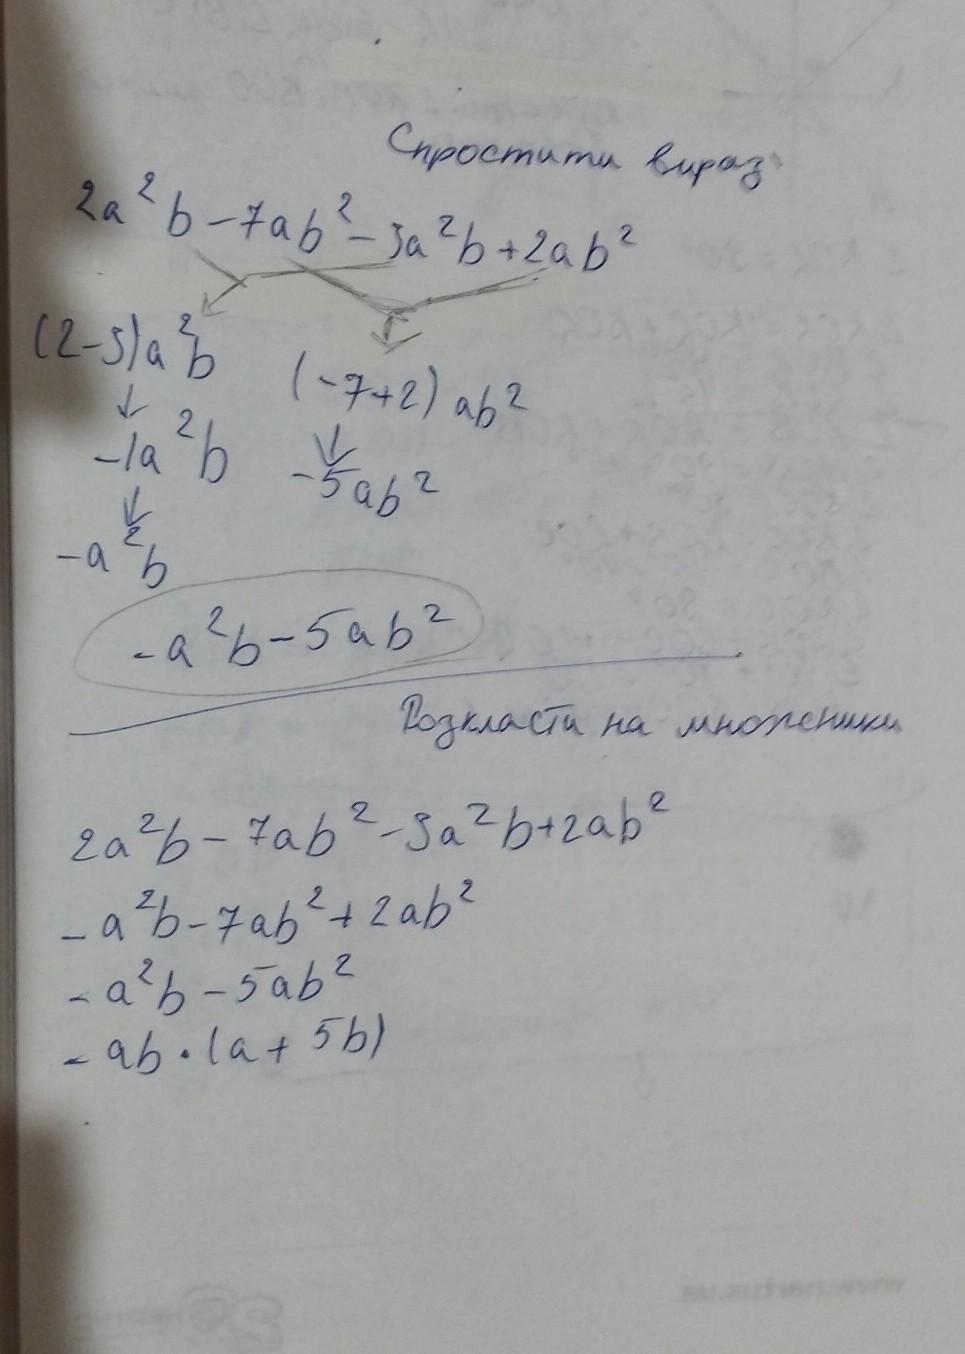 Спростити вираз
2a²b-7ab²-3a²b+2ab²
(2-3)a²b
(-7+2)ab²
-1a²b
-5ab²
-a²b
-a²b-5ab²
Розкласти на множники
2a²b-7ab²-3a²b+2ab²
-a²b-7ab²+2ab²
-a²b-5ab²
-ab·(a+5b)